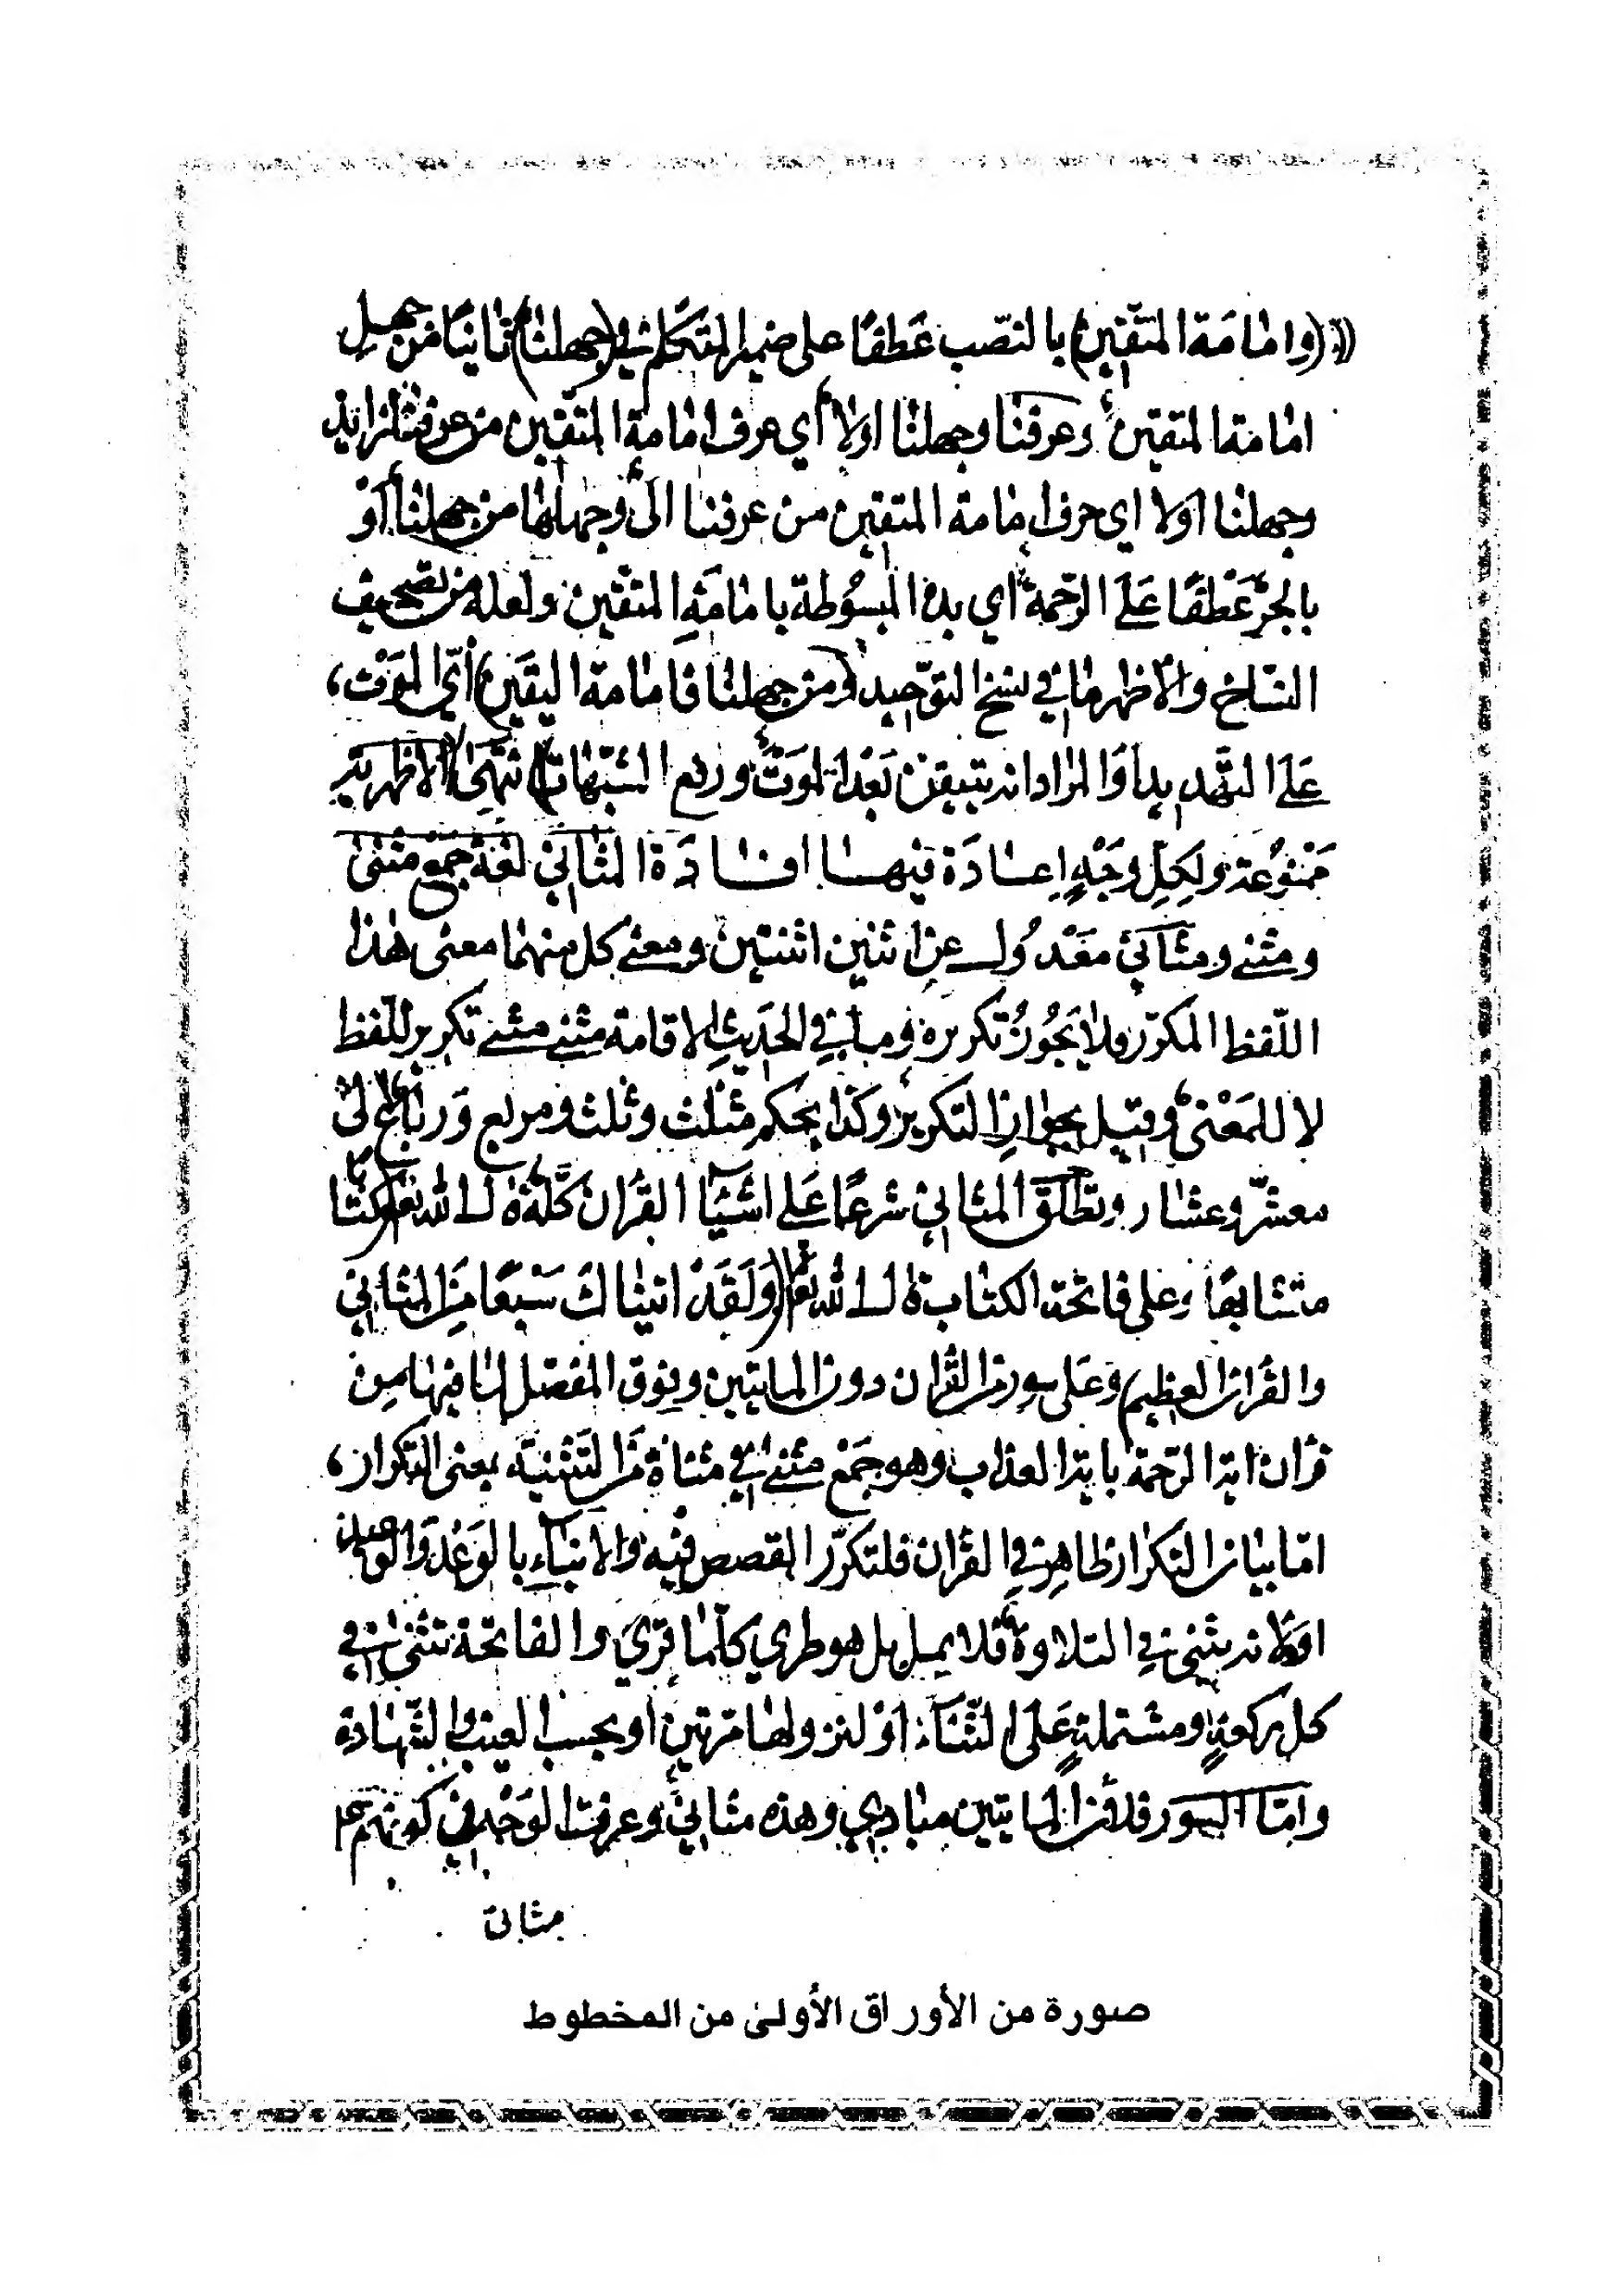 (وامامة المتقين) بالنصب عطفًا على ضمير المتكلم في (جهلنا) ثانيًا من جهل
امامة المتقين وعرفنا وجهلنا اولا أي عرف امامة المتقين من عرفنا
وجهلنا اولا اي عرف امامة المتقين من عرفنا وجهلها من جهلنا أو
بالجرّ عَطفًا عَلَى الرّحمة أي المبسُوطة بامامَةِ المتقين ولعله من تصحيف
النسّاخ والأظهر ما في نسخ التوحيد (ومن جهلنا فامامة اليقين) أي الموت،
عَلَى التهديد أو المراد انه يتيقن بَعْد الموت ورفع الشبهات) انتهى الاظهرية
ممنوُعة ولِكلِّ وجْهٍ اعادَة فيها افادَة المثاني لغة جَمْع مثنى
ومثنى ومثاني مَعْدُول عن اثنين اثنتين ومعنى كل منهما معنى هذا
اللّفظ المكرّر ولا يَجُوزُ تكريره وما في الحَديث الاقامة مثنى مثنى تكرير للّفظ
لا للمَعْنى وقيل بجواز التكرير وكذا بحكم مثلث وثلث ومربع وَرباع الى
معشر وعشار وتطلَق المثاني شرعًا عَلى اشيَاء القرآن كلّه قال الله تعالى كتابا
متشابهًا وعلى فاتحة الكتاب قال الله تعالى (وَلَقَدْ اتيناكَ سَبْعًا مِنَ المثاني
والقران العظيم) وعَلى سور من القرآن دون المایتین وفوق المفصّل لما فيها مِن
قرَان اية الرّحمة باية العذاب وهو جَمْع مثنى في مثناة مَن التَثنية بمعنى التكرار،
امّا بيان التكرار ظاهر في القرآن فلتكرّر القصص فيه والانباء بالوَعْد والوعيد
اوْ لانه يثنى في التلاوة فلا يمل بل هو طري كلّما قرِيَ والفاتحة تثنى في
كل ركعةٍ ومشتملةٍ عَلى الثنَاء اوْ لنزولها مَرتين او بحسب الغيب والشّهادة
وامّا السّور فلأن المایتین مبادي وهذه مثاني وعرفت الوَجْه في كونهم ع
مثاني
صورة من الأوراق الأولى من المخطوط